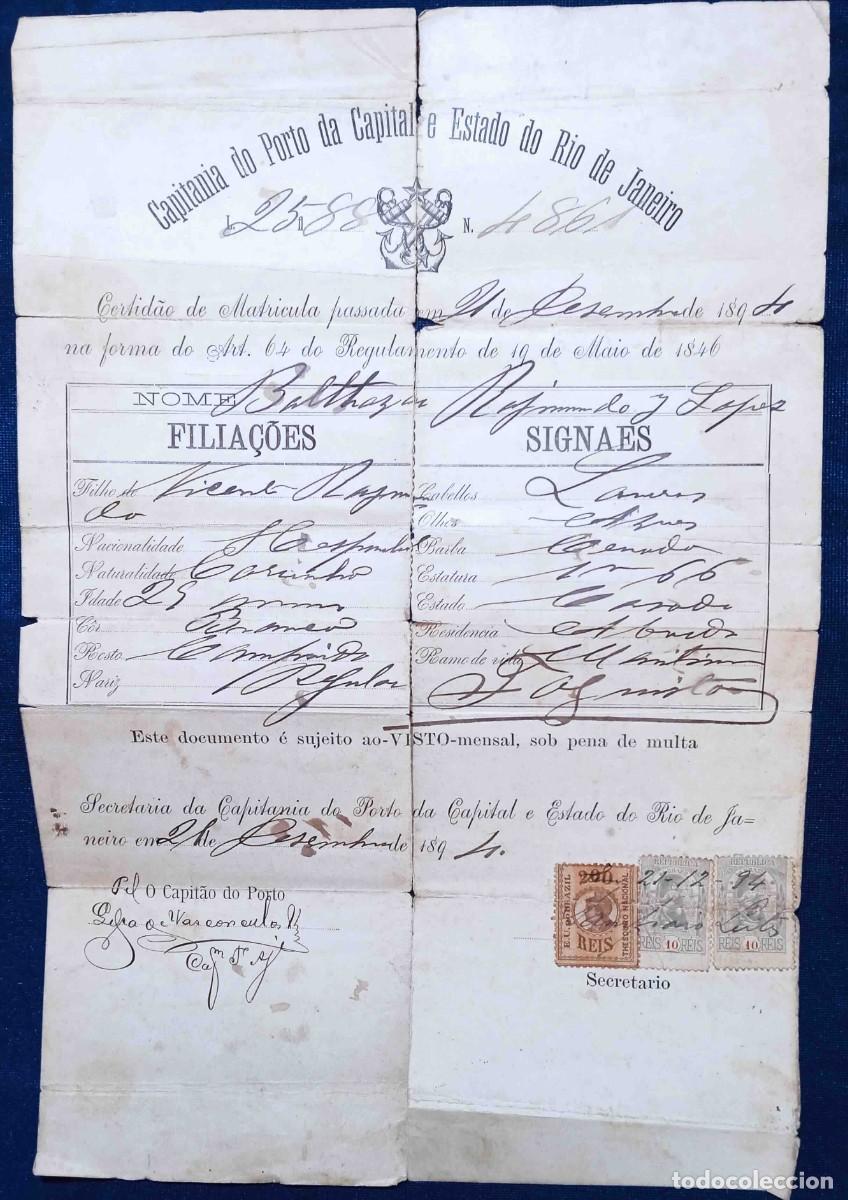 Capitania do Porto da Capital e Estado do Rio de Janeiro
L 25 88 N. 4861
Certidão de Matricula passada em 21 de Desembro de 1894
na forma do Art. 64 do Regulamento de 19 de Maio de 1846
NOME Balthazar Rajmundo y Lopez
FILIAÇÕES SIGNAES
Filho de Vicente Rajmun
do
Nacionalidade Hespanhol
Naturalidade
Idade 29 annos
Côr Branca
Rosto Comprido
Nariz Regular
Cabellos Louros
Olhos Azues
Barba
Estatura 1m 66
Estado Casado
Residencia A bordo
Ramo de vida Maritima
Foguista
Este documento é sujeito ao-VISTO-mensal, sob pena de multa
Secretaria da Capitania do Porto da Capital e Estado do Rio de Ja=
neiro em 21 de Desembro de 1894.
Pel O Capitão do Porto
de Vasconcellos
Capm Te Aj
200
E. U. DO BRAZIL
THESOURO NACIONAL
REIS
REPUBLICA
REIS 10 REIS
REPUBLICA
REIS 10 REIS
21-12-94
Secretario
todocoleccion